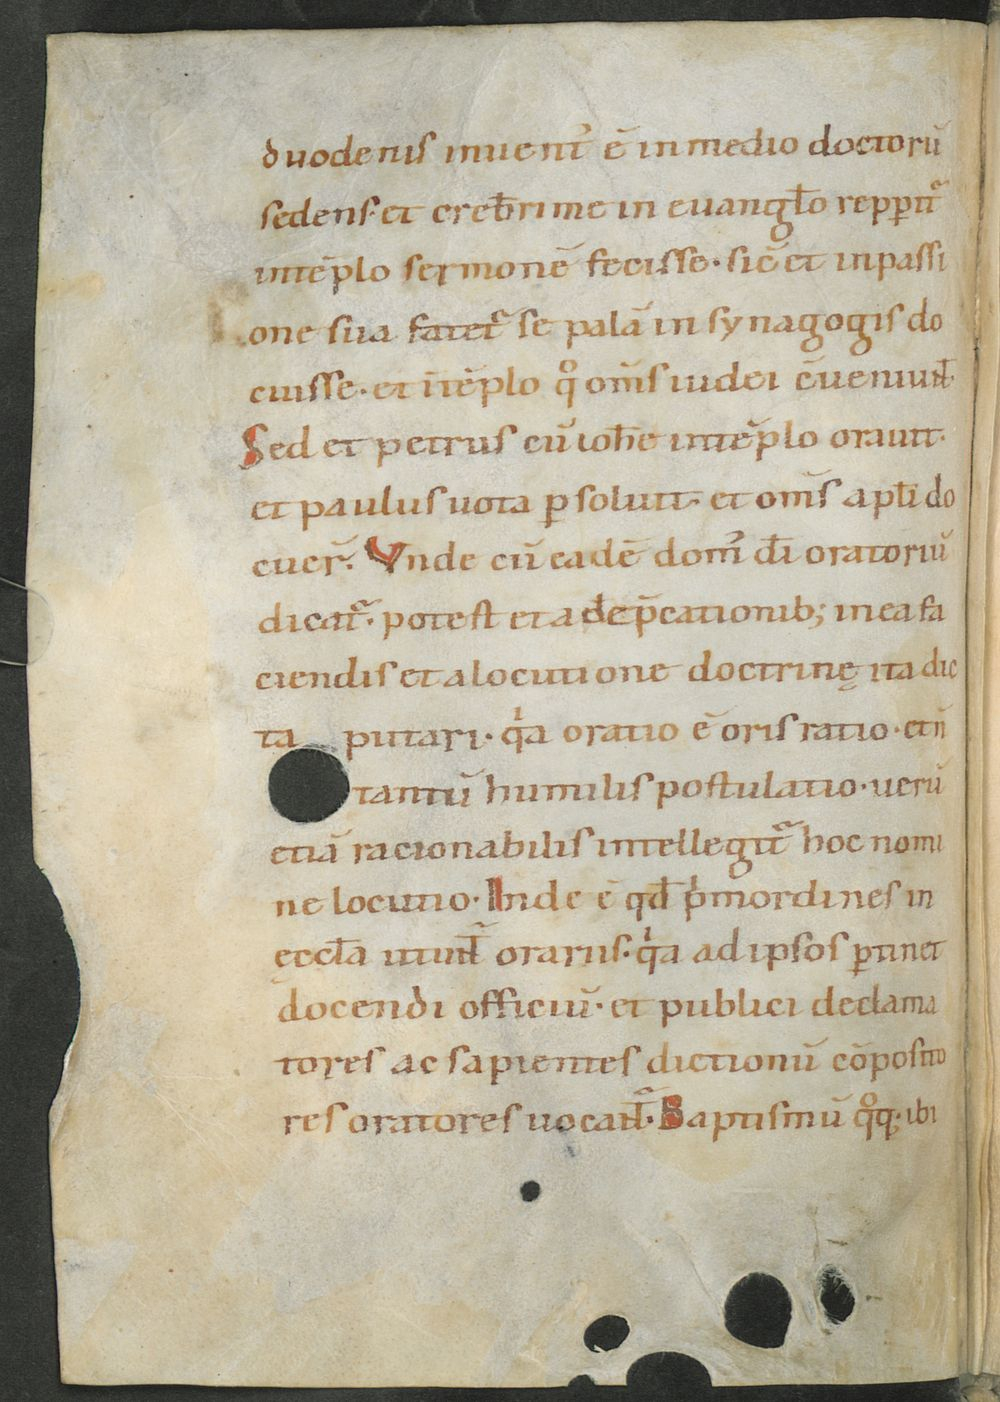 duodenis inuent᷒ ē in medio doctorū
sedens· et creb̄rime in euangl̄o repꝑit᷑
intēplo sermonē fecisse· sic̄ et in passi
one sua fatet᷑ se palā in synagogis do
cuisse· et ītēplo q̊ om̄s iudei c̄ueniun̄t·
Sed et petrus cū ioh̄e intēplo orauit·
et paulus uota ꝑsoluit· et om̄s apl̄i do
cuer̄· Vnde cū eadē dom᷒ dī oratoriū
dicat᷑· potest et a dep̄cationib; in ea fa
ciendis et a locutione doctrinę ita dic
ta putari· qͥa oratio ē oris ratio· et ñ
tantū humilis postulatio· uerū
etiā racionabilis intellegit᷑ hoc nomi
ne locutio· Inde ē qd̄ pͥmordines in
ęccl̄a utunt᷑ orariis· qͥa ad ipsos ꝑtinet
docendi officiū· et publici declama
tores ac sapientes dictionū cōposito
res oratores uocant᷑· Baptismū q̊q; ibi